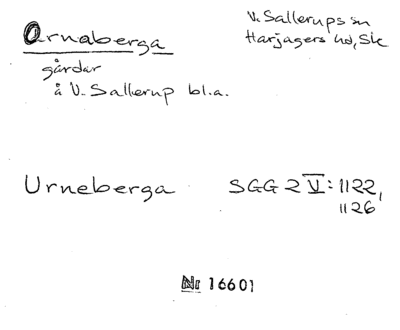 Ornaberga
V. Sallerups sn
Harjagers hd, Sk
gårdar
å V. Sallerup bl.a.
Urneberga SGG 2 V: 1122,
1126
Nr 16601